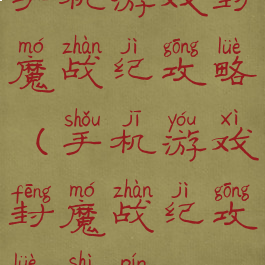 手机游戏封
mó zhàn jì gōng lüè
魔战纪攻略
shǒu jī yóu xì
（手机游戏
fēng mó zhàn jì gōng
封魔战纪攻
lüè shì pín